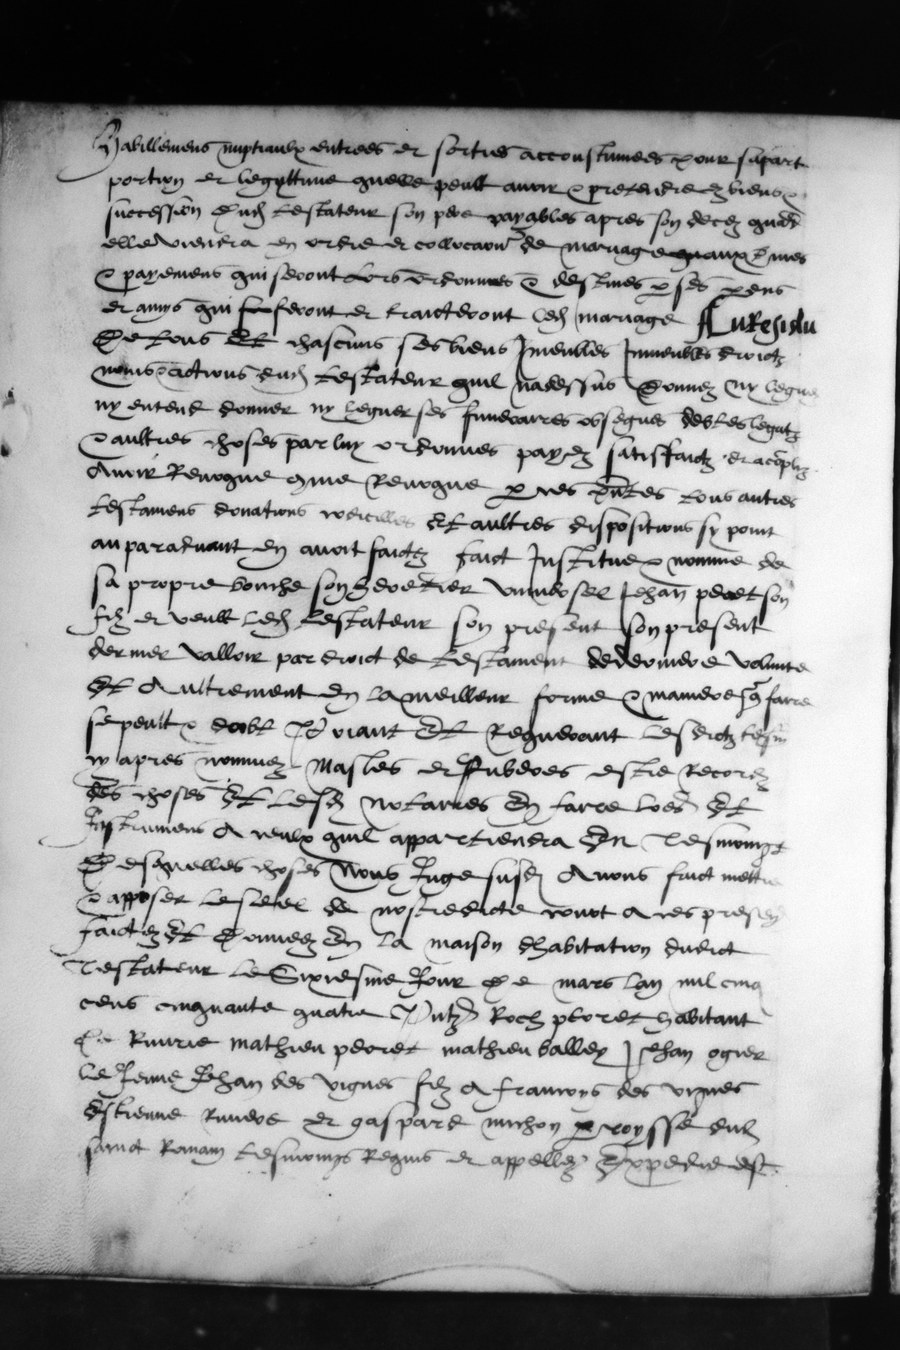 habillemens nuptiaulx entrees et sorties accoustumees pour sa part
portion et legittime quelle peult avoir & pretendre ez biens &
succession dud testateur son pere payables apres son decez quand
elle viendra en ordre et collocaon de mariage & mes
& payemens qui seront lors ordonnes & destines p ses pens
et amys qui feront et traicteront led mariage Au residu
De tous et chascuns ses biens Imeubles Immeubles droictz
noms & actions dud testateur quil na dessus donnez ny legue
ny entend donner ny leguer ses funerares obseques debtes legatz
& aultres choses par luy ordonnes payez satisfaictz et acoplis
Avoir Revoque come Revoque p ces pntes tous autres
testamens donations codicilles et aultres dispositions sy point
auparadvant en avoit faictz faict Institue & nomme de
sa propre bouche son heretier universel Jehan peret son
filz et veult led testateur son present son present
dernier valloir par droict de testament derreniere volunte
Et Aultrement En la meilleur forme & maniere q faire
se peult & doibt Priant Et Requerant lesdictz tesm
cy apres nommez Masles et Puberes estre Recordz
des choses Et lesd notaires En faire lres Et
Instrumens A ceulx quil appartiendra En Tesmoingt
Desquelles choses Nous Juge susd Avons faict mettre
& apposer le seel de nostredicte court A ces presen
faictz Et Donnez En la maison dhabitation dudict
Testateur le Sixiesme Jour De mars lan mil cinq
cens cinquante quatre Pntz Roch peret habitant
De Rivirie mathieu peret mathieu balley Jehan ogier
le Jeune Jehan des vignes filz A francoys des vignes
Estienne Riviere et gaspard michon p dud
sainct Romain tesmoings Requis et appellez Expedie est